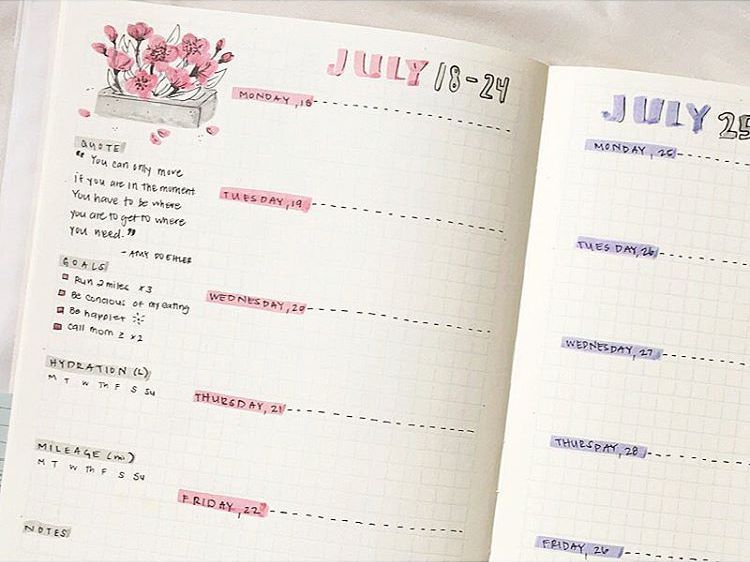 JULY 18-24
QUOTE
"You can only move
if you are in the moment
You have to be where
you are to get to where
you need."
- AMY POEHLER
GOALS
Run 2 miles x3
Be concious of my eating
Be happier
Call mom x2
HYDRATION (L)
M T W Th F S Su
MILEAGE (mi)
M T W Th F S Su
NOTES
MONDAY, 18
TUESDAY, 19
WEDNESDAY, 20
THURSDAY, 21
FRIDAY, 22
JULY 25
MONDAY, 25
TUESDAY, 26
WEDNESDAY, 27
THURSDAY, 28
FRIDAY,